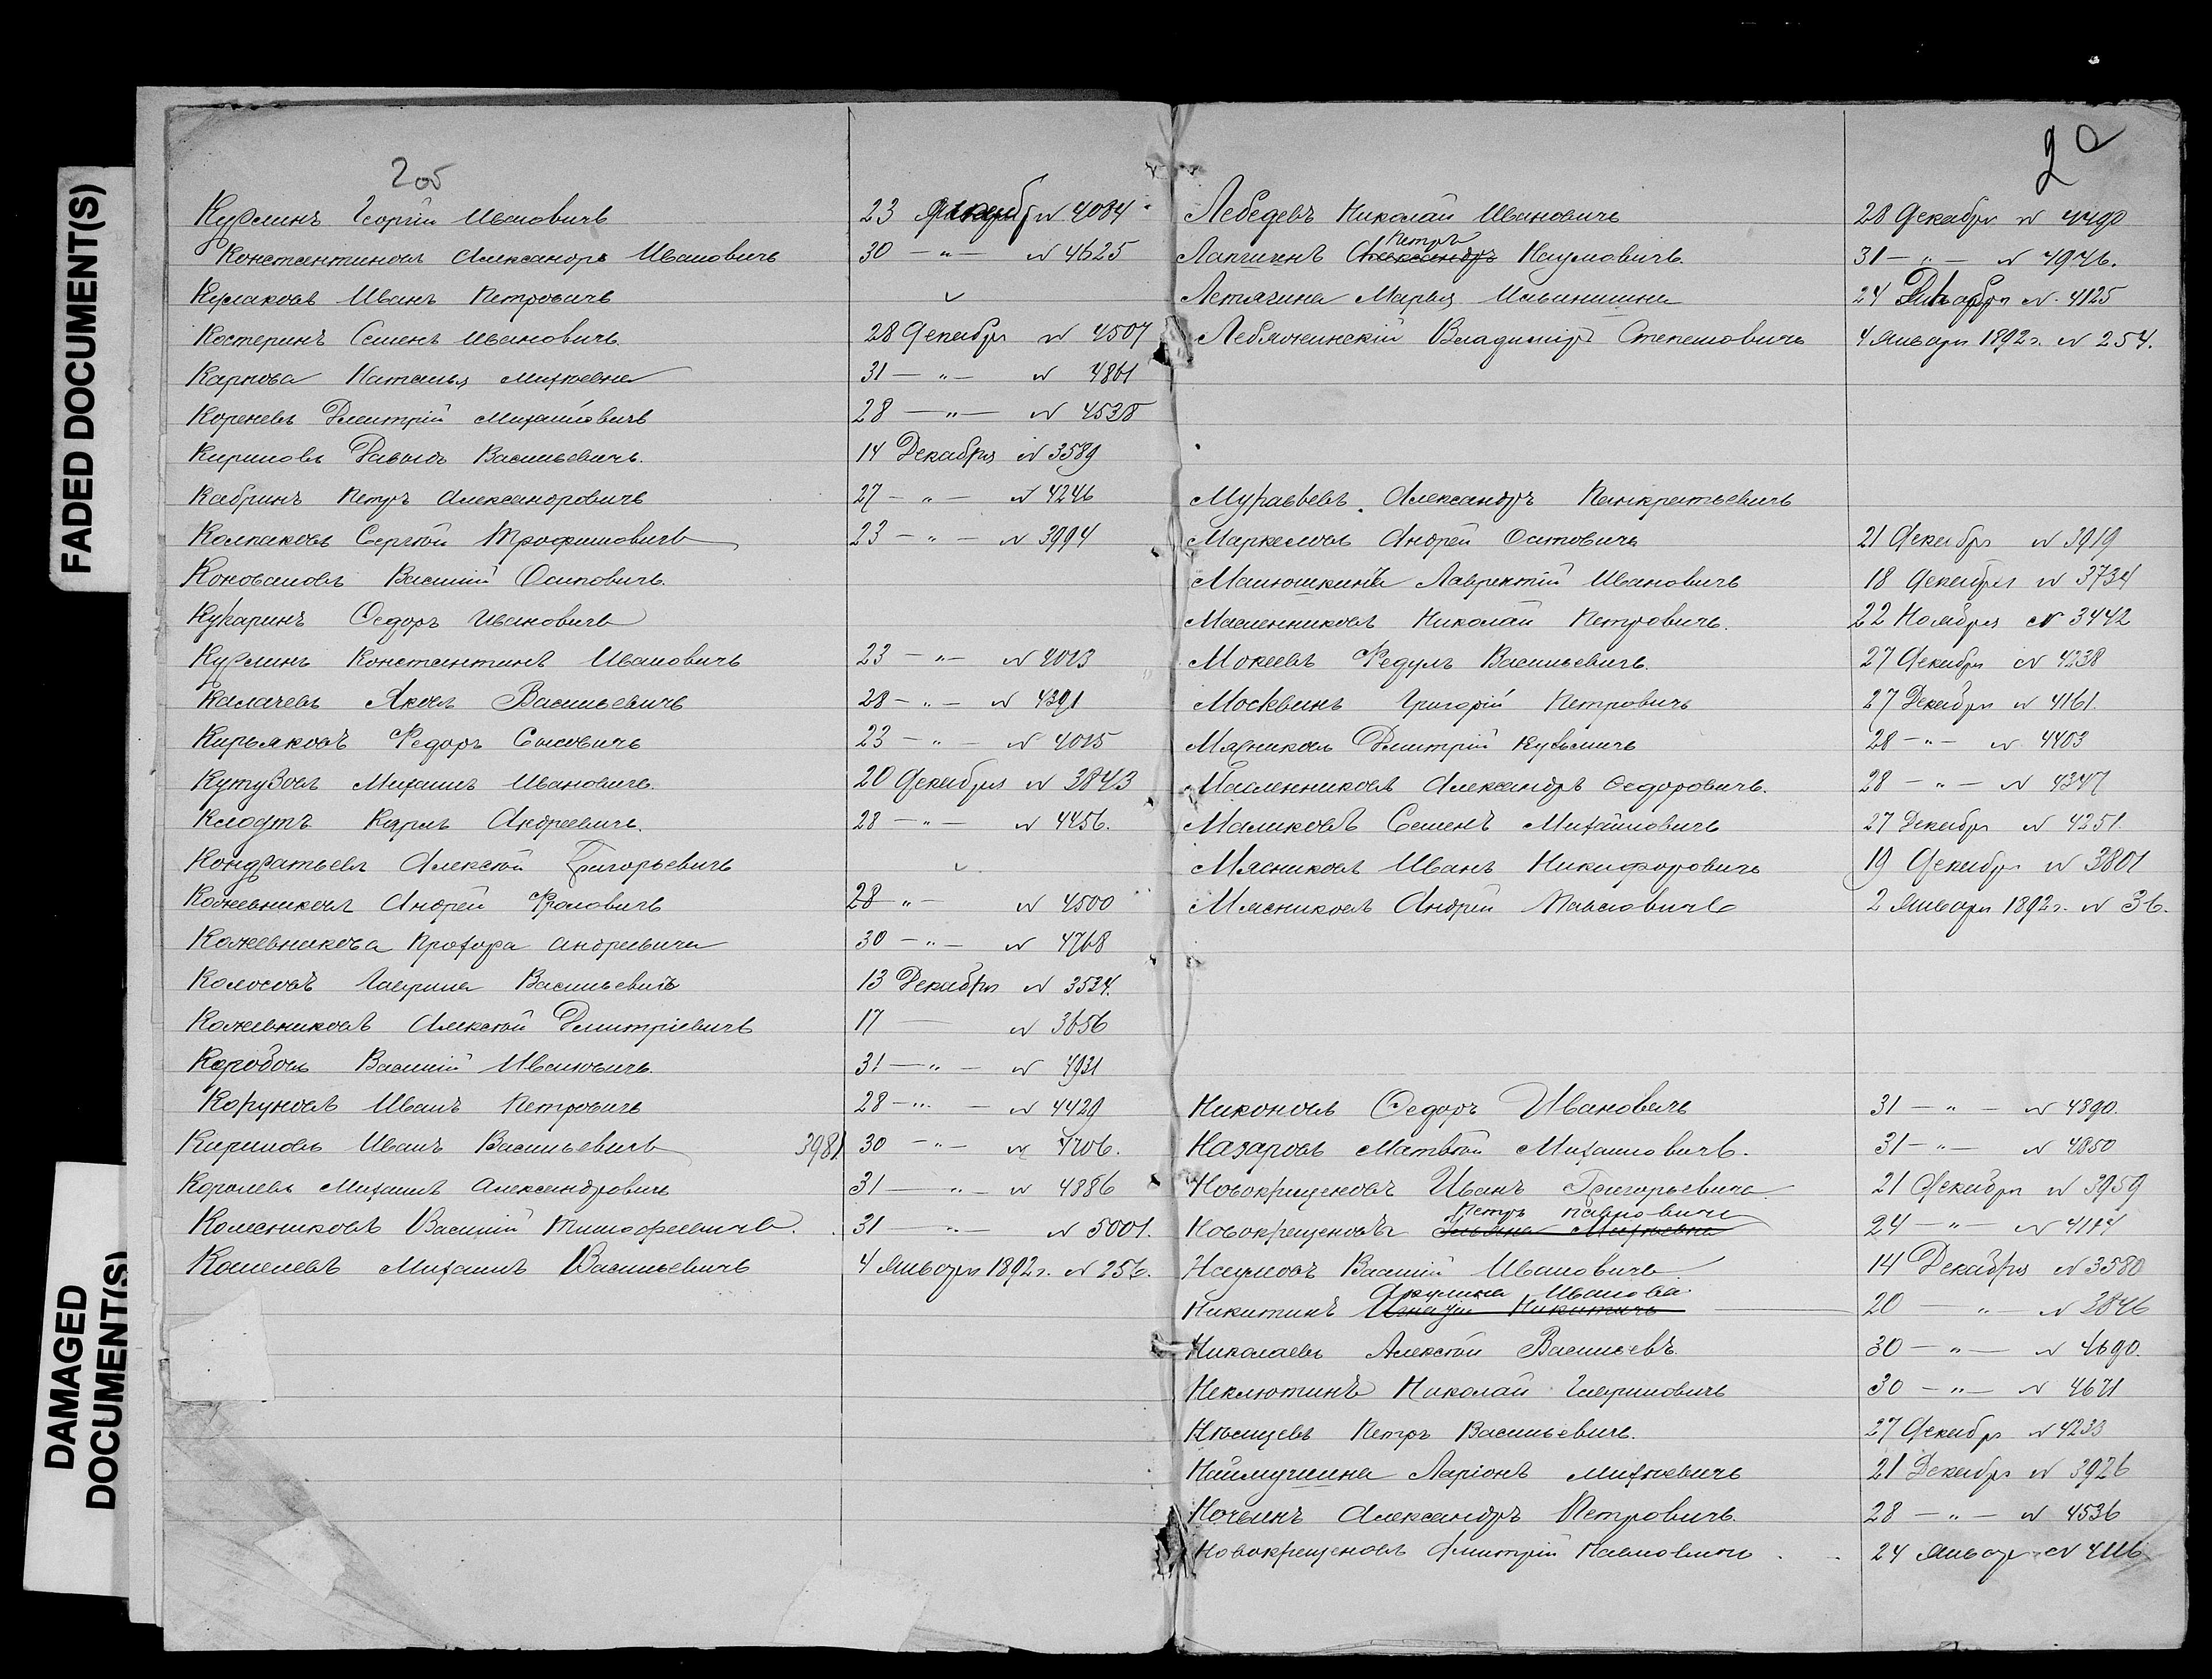 FADED DOCUMENT(S)
DAMAGED DOCUMENT(S)
2об
Курлинъ Георгій Ивановичъ 23 Декабр № 4084
Константиновъ Александръ Ивановичъ 30 — „ — № 4625
Кулаковъ Иванъ Петровичъ ✓
Костеринъ Семенъ Ивановичъ. 28 Декабря № 4507
Карпова Наталья Михѣевна 31 — „ — № 4801
Кореневъ Дмитрій Михайловичъ 28 — „ — № 4538
Кириловъ Давыдъ Васильевичъ. 14 Декабря № 3589
Кабринъ Петръ Александровичъ 27 — „ — № 4246
Колпаковъ Сергѣй Трофимовичъ 23 — „ — № 3994
Коноваловъ Василій Осиповичъ.
Кухаринъ Ѳедоръ Ивановичъ
Курлинъ Константинъ Ивановичъ 23 — „ — № 4013
Калачевъ Яковъ Васильевичъ 28 — „ — № 4391
Кирьяковъ Федоръ Сысовичъ 23 — „ — № 4015
Кутузовъ Михаилъ Ивановичъ. 20 Декабря № 3843
Клодтъ Карлъ Андреевичъ. 28 — „ — № 4456.
Кондратьевъ Алексѣй Григорьевичъ ✓
Кожевниковъ Андрей Фроловичъ 28 — „ — № 4500
Кожевникова Прохора Андреевича 30 — „ — № 4768
Колосовъ Гаврила Васильевичъ 13 Декабря № 3534.
Кожевниковъ Алексѣй Дмитріевичъ 17 — № 3656
Коробовъ Василій Ивановичъ. 31 — „ — № 4931
Коруновъ Иванъ Петровичъ 28 — „ — № 4429
Кириловъ Иванъ Васильевичъ 3981 30 — „ — № 4706.
Королевъ Михаилъ Александровичъ 31 — „ — № 4886
Колесниковъ Василій Тимофеевичъ. 31 — „ — № 5001.
Кошелевъ Михаилъ Васильевичъ 4 Января 1892 г. № 256.
2
Лебедевъ Николай Ивановичъ 28 Декабря № 4490
Петръ
Лапшинъ Александръ Наумовичъ. 31 — „ — № 4946.
Летягина Марья Ильинишна 24 № 4125
Лебяжинскій Владиміръ Степановичъ 4 Января 1892 г. № 254.
Муравьевъ. Александръ Панкратьевичъ
Маркеловъ Андрей Осиповичъ 21 Декабря № 3919
Манюшкинъ Лаврентій Ивановичъ 18 Декабря № 3734
Масленниковъ Николай Петровичъ. 22 Ноября № 3442
Мокеевъ Федулъ Васильевичъ. 27 Декабря № 4238
Москвинъ Григорій Петровичъ 27 Декабря № 4161.
Мясниковъ Дмитрій Кузьмичъ 28 — „ — № 4403
Масленниковъ Александръ Ѳедоровичъ. 28 — „ — № 4347
Маликовъ Семенъ Михайловичъ 27 Декабря № 4251.
Мясниковъ Иванъ Никифоровичъ 19 Декабря № 3801
Мясниковъ Андрей Павловичъ 2 Января 1892 г. № 36.
Никоновъ Ѳедоръ Ивановичъ 31 — „ — № 4890.
Назаровъ Матвѣй Михайловичъ. 31 — „ — № 4850
Новокрещеновъ Иванъ Григорьевичъ 21 Декабря № 3959
Петръ Павловичъ
Новокрещеновъ Ульяна Михѣевна 24 — „ — № 4114
Наумовъ Василій Ивановичъ 14 Декабря № 3580
Акулина Иванова
Никитинъ Никитичъ 20 — „ № 3846
Николаевъ Алексѣй Васильевъ. 30 — „ — № 4690.
Неклютинъ Николай Гавриловичъ 30 — „ — № 4671
Нѣмцевъ Петръ Васильевичъ. 27 Декабря № 4233
Наймушина Ларіонъ Михѣевичъ 21 Декабря № 3926
Ночвинъ Александръ Петровичъ. 28 — „ — № 4536
Новокрещеновъ Дмитрій Павловичъ 24 Январ № 4116